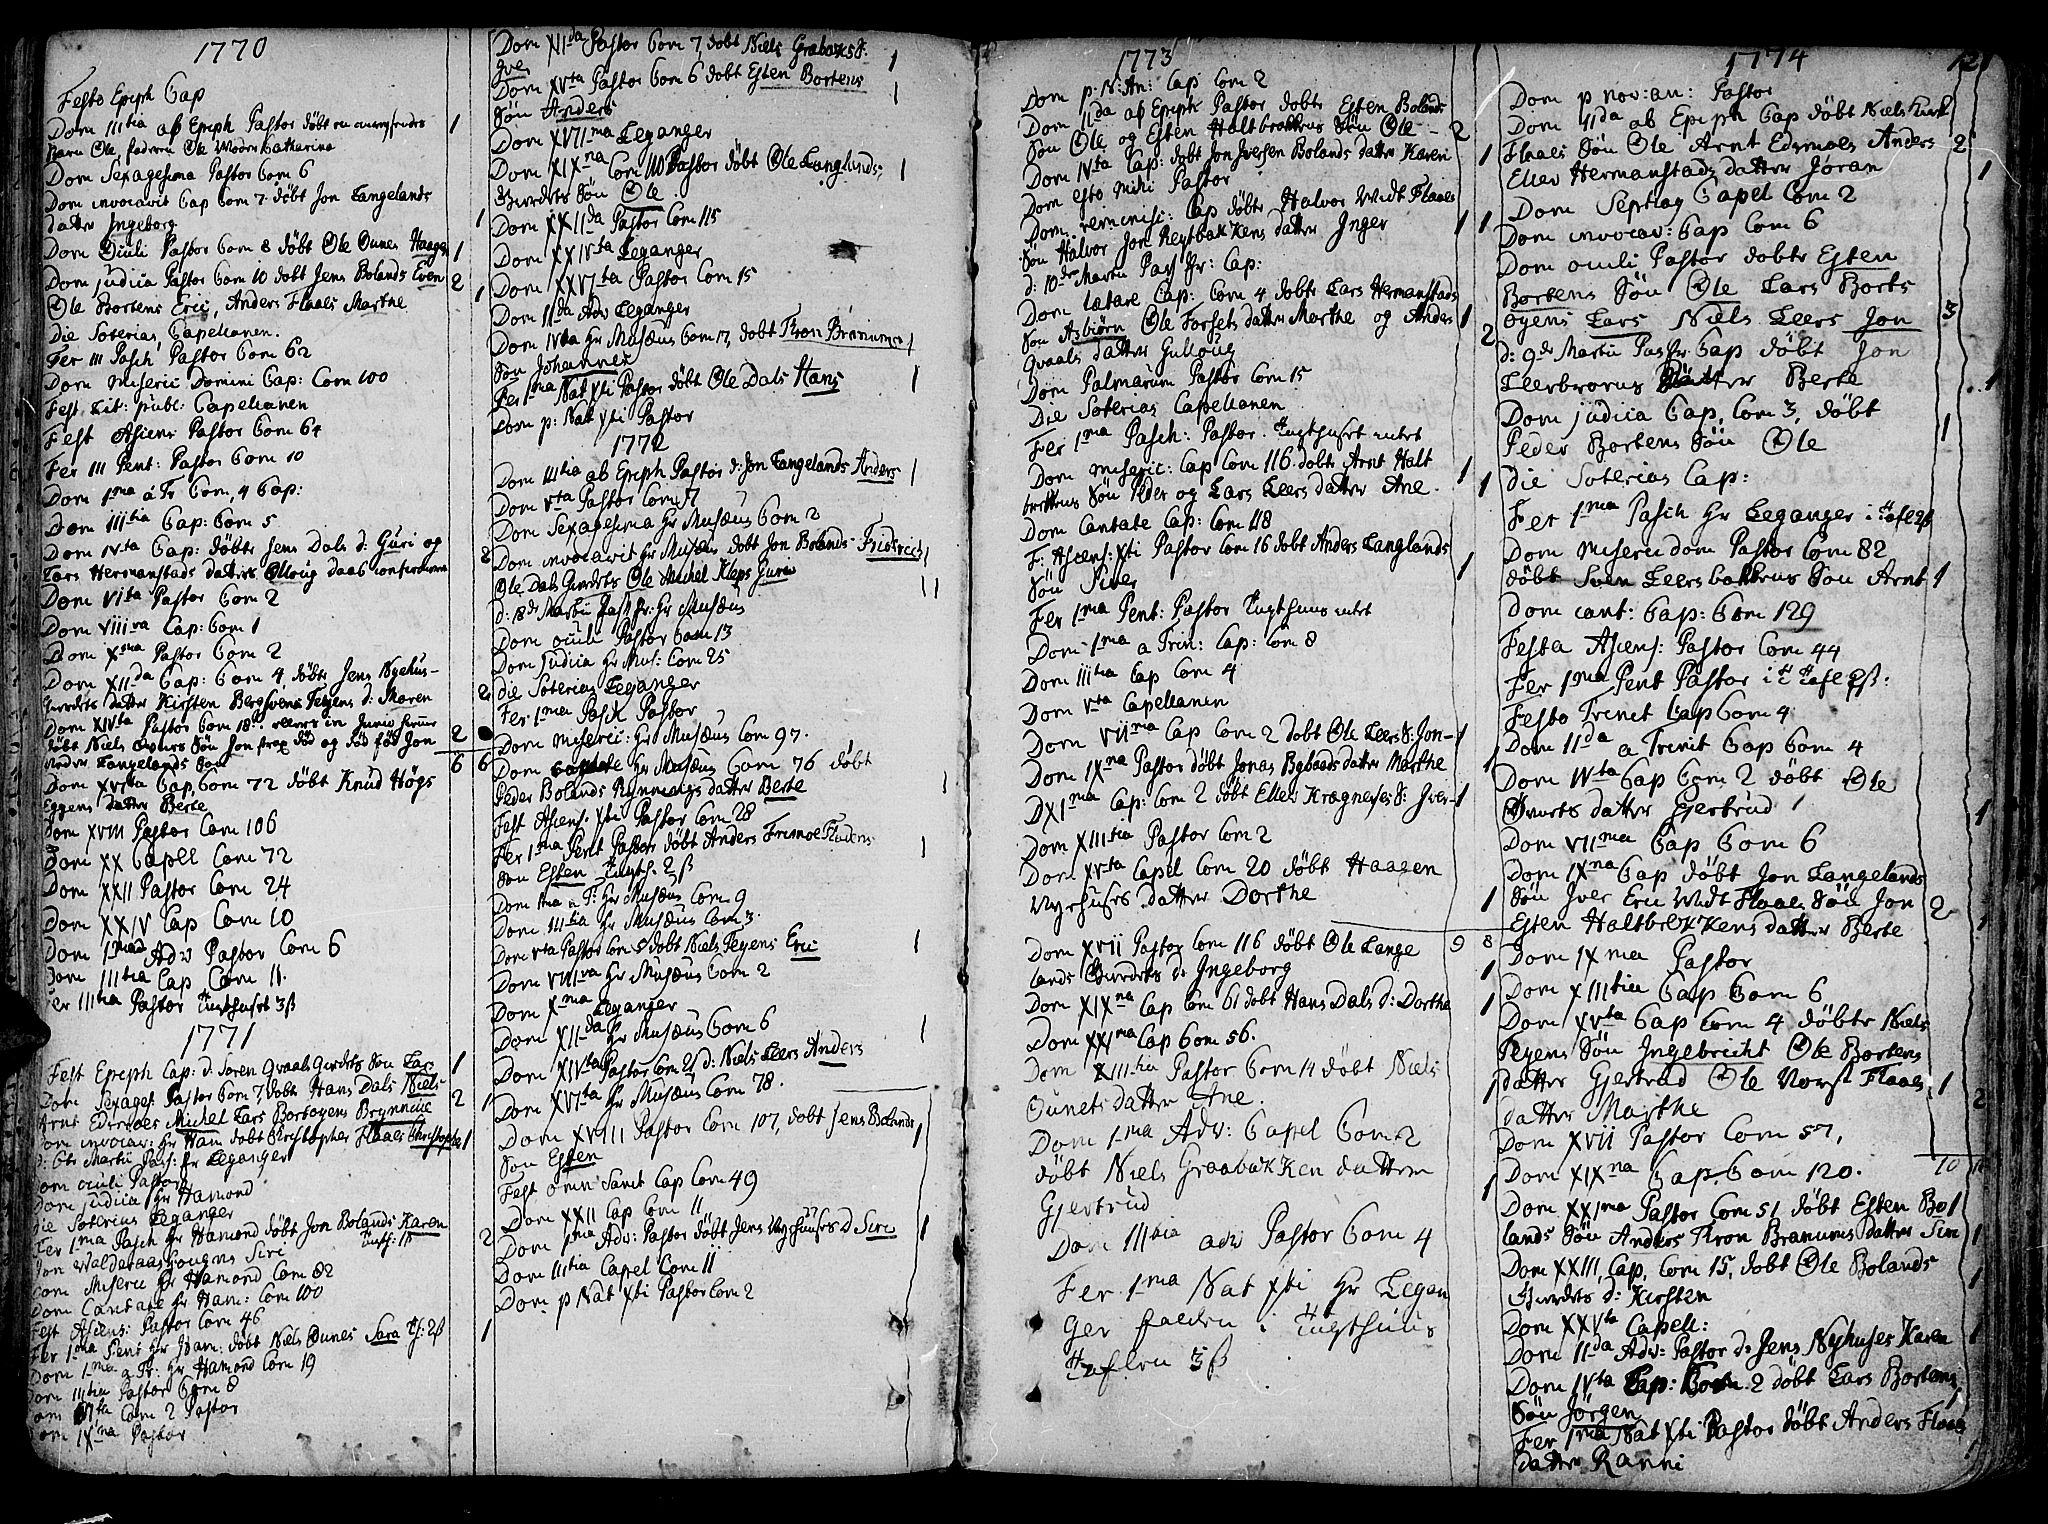 1770
Festo Epiph Cap
Dom IIItia ab Epiph Pastor döbt en
barn Ole faderen Ole Moder Catharina
Dom Sexagesima Pastor Com 6
Dom invocavit Cap Com 7. döbt Jon Langelands
datter Ingeborg 1
Dom Oculi Pastor Com 8 döbt Ole Ounes Haagen 1
Dom judica Pastor Com 10 döbt Jens Bolands Even 2
Ole Bortens Eric, Anders Flaaes Marthe 1
Die Soterias, Capellanen.
Fer III Pasch Pastor Com 62
Dom Miseric Domini Cap: Com 100
Fest Lit: publ: Capellanen
Fest Asiens Pastor Com 64
Fer III Pent: Pastor Com 10
Dom 1ma á Tr Com, 4 Cap:
Dom IIItia Cap: Com 5
Dom IVta Cap: döbte Jens Dals d: Guri og
Lars Hermanstads datter Olloug
Dom VIta Pastor Com 2
Dom VIIIva Cap: Com 1
Dom Xma Pastor Com 2
Dom XIIda Cap: Com 4 döbt Jens Nyehus-
datter Kirsten Tegens d: Maren 2
Dom XIVta Pastor Com 18
döbt Niels Söu Jon död og Jon 2
Langelands Son 6 6
Dom XVIta Cap Com 72 döbt Knud Högs
Eggens datter Berte
Dom XVIII Pastor Com 106
Dom XX Capell Com 72
Dom XXII Pastor Com 24
Dom XXIV Cap Com 10
Dom 1ma Adv Pastor Com 6
Dom IIItia Cap Com 11.
Fer IIItia Pastor Tugthuset 3ß
1771
Fest Epiph Cap: d: Soren Qvaals Son Lars 1
Dom Sexages Pastor Com 7, döbt Hans Dals Niels 2
Arnt Edemoes Michel Lars Bortoyens Brynnille 1
Dom invocav: Hr Ham döbt Christopher Flaaes Christopher 1
d: 6te Martii Pass: pr Leganger
Dom oculi Pastor
Dom judica Hr Hamond
Die Soterias Leganger
Fer 1ma Pasch Hr Hamond döbt Jon Bolands Karen 2
Jon Siri
Dom Miseric Hr Hamond Com 82
Dom Cantate Hr Ham: Com 100
Fest Asiens: Pastor Com 46
Fer 1ma Pent Hr Ham: döbt Niels Ounes Sara 2ß 1
Dom 1ma a Tr: Hr Hamond Com 19
Dom IIItia Pastor Com 8
Dom VIta Com 2 Pastor
Dom IXma Pastor
Dom XIda Pastor Com 7 döbt Niels Grabakes S: 1
Iver
Dom XVta Pastor Com 6 döbt Esten Bortens 1
Söu Anders
Dom XVIIma Leganger
Dom XIXna Com 110 Pastor döbt Ole Langlands 1
Söu Ole
Dom XXIIda Pastor Com 115
Dom XXIVta Leganger
Dom XXVIta Pastor Com 15
Dom IIda Adv Leganger
Dom IVta Hr Musæus Com 17, döbt Tron Branumes 1
Son Johannes
Fer 1ma Nat Xti Pastor döbt Ole Dals Hans 1
Dom p: Nat Xti Pastor
1772
Dom IIItia ab Epiph Pastor d: Jon Langelands Anders 1
Dom Vta Pastor Com 17
Dom Sexagesima Hr Musæus Com 2
Dom invocavit Hr Musæus döbt Jon Bolands Fridrich 1
Ole Dals Ole Michel Kleps Guru 1 1
d: 18de Martii Pass pr: Hr Musæus
Dom oculi Pastor Com 13
Dom Judica Hr Mus: Com 25
Die Soterias Leganger
Fer 1ma Pasch Pastor
Dom Miseric: Hr Musæus Com 97.
Dom Cantate Hr Musæus Com 76 döbt
Peder Bolands datter Berte 1
Fest Asiens. Xti Pastor Com 28
Fer 1ma Pent Pastor döbt Anders Flaaens 1
Son Esten Tugth. 2ß
Dom 1ma a T: Hr Musæus Com 9
Dom IIItia Hr Musæus Com 3.
Dom Vta Pastor Com 5 döbt Niels Tegens Eric 1
Dom VIIIva Hr Musæus Com 2
Dom Xma Leganger
Dom XIIda Hr Musæus Com 6
Dom XIVta Pastor Com 21 d: Niels Leers Anders 1
Dom XVIta Hr Musæus Com 78.
Dom XVIII Pastor Com 107, döbt Jens Bolands 1
Son Esten
Fest omn Sanct Cap Com 49
Dom XXII Cap Com 11
Dom 1ma Adv: Pastor döbt Jens Nyhuuses D Siri 1
Dom IIItia Capel Com 11
Dom p Nat Xti Pastor Com 2
1773
Dom p. N: An: Cap Com 2
Dom IIda ab Epiph Pastor döbte Esten Bolands
Son Ole og Esten Haltbrekkens Söu Ole 2
Dom IVta Cap: döbt Jon Iversen Bolands datter Karen 1
Dom esto Mihi Pastor
Dom reminisc: Cap döbte Halvor Widt Flaaes
Son Halvor Jon Reytbakkens datter Inger 1 1
d: 10de Martii Pass pr: Cap:
Dom Lætare Cap: Com 4 döbte Lars Hermanstads
Son Asbiörn Ole Forsets datter Marthe og Anders 1
Qvaals datter Gulloug 2
Dom Palmarum Pastor Com 15
Die Soterias Capellanen
Fer 1ma Pasch: Pastor. Tugthuset intet
Dom Miseric: Cap Com 116. döbte Arnt Halt
brekkens Söu Peder og Lars Leers datter Ane. 1 1
Dom Cantate Cap: Com 118
F: Asiens: Xti Pastor Com 16 döbt Anders Langlands
Söu Siver 1
Fer 1ma Pent: Pastor Tugthuus intet
Dom 1ma a Trin: Cap: Com 8
Dom IIItia Cap Com 4
Dom Vta Capellanen
Dom VIIma Cap Com 2 döbt Ole Leers S: Jon 1
Dom IXna Pastor döbt Jonas datter Marthe 1
D XIma Cap: Com 2 döbt Ellev Krægneses S: Iver 1
Dom XIIItia Pastor Com 2
Dom XVta Capel Com 20 döbt Haagen
Nyehuses datter Dorthe 1
Dom XVII Pastor Com 116 döbt Ole Lange 9 8
lands d: Ingeborg 1
Dom XIXna Cap Com 61 döbt Hans Dals d: Dorthe 1
Dom XXIma Cap Com 56.
Dom XIIItia Pastor Com 14 döbt Niels
Ounets datter Ane. 1
Dom 1ma Adv: Capel Com 2
döbt Niels Graabakken datter
Gjertrud 1
Dom IIItia adv Pastor Com 4
Fer 1ma Nat Xti Hr Legan
ger i Tugthuus
Taflen 3ß
1774
121
Dom p nov: an: Pastor
Dom IIda ab Epiph Cap döbt Niels
Flaaes Söu Ole Arnt Edemoes Anders 2
Ellev Hermanstads datter Jöran 1
Dom Septuag Capel Com 2
Dom invocav: Cap Com 6
Dom oculi Pastor döbte Esten
Bortens Söu Ole Lars Borts
öyens Lars Niels Leers Jon 3
d: 9de Martii Pas pr Cap döbt Jon
Leerbroens datter Berte 1
Dom judica Cap Com 3, döbt
Peder Bortens Söu Ole 1
Die Soterias Cap:
Fer 1ma Pasch Hr Leganger i Tafl 2ß
Dom Miseric dom Pastor Com 82
döbt Sven Leersbakkens Söu Arnt 1
Dom cant: Cap: Com 129
Festo Asiens: Pastor Com 44
Fer 1ma Pent Pastor i T Tafl 2ß:
Festo Trinit Cap Com 4
Dom IIda a Trinit Cap Com 4
Dom IVta Cap Com 2 döbt Ole
datter Gjertrud 1
Dom VIIma Cap Com 6
Dom IXna Cap döbt Jon Langelands
Söu Iver Eric Widt Flaaes Söu Jon 2
Esten Haltbrekkens datter Berte 1
Dom IXma Pastor
Dom XIIItia Cap Com 6
Dom XVta Cap Com 4 döbte Niels
Tegens Söu Ingebricht Ole Bortens
datter Gjertrud Ole Flaaes 1
datter Marthe 2
Dom XVII Pastor Com 57,
Dom XIXna Cap. Com 120. 10
Dom XXIma Pastor Com 51 döbt Esten Bo 1
lands Söu Anders Tron Branums datter Siri 1
Dom XXIII Cap. Com 15, döbt Ole Bolands
d: Kirsten 1
Dom XXVta Capell:
Dom IIda Adv: Pastor d: Jens Nyhuses Karen 1
Dom IVta Cap: Com 2 döbt Lars Bortens
Söu Jörgen 1
Fer 1ma Nat Xti Pastor döbt Anders Flaaes
datter Ranni 1